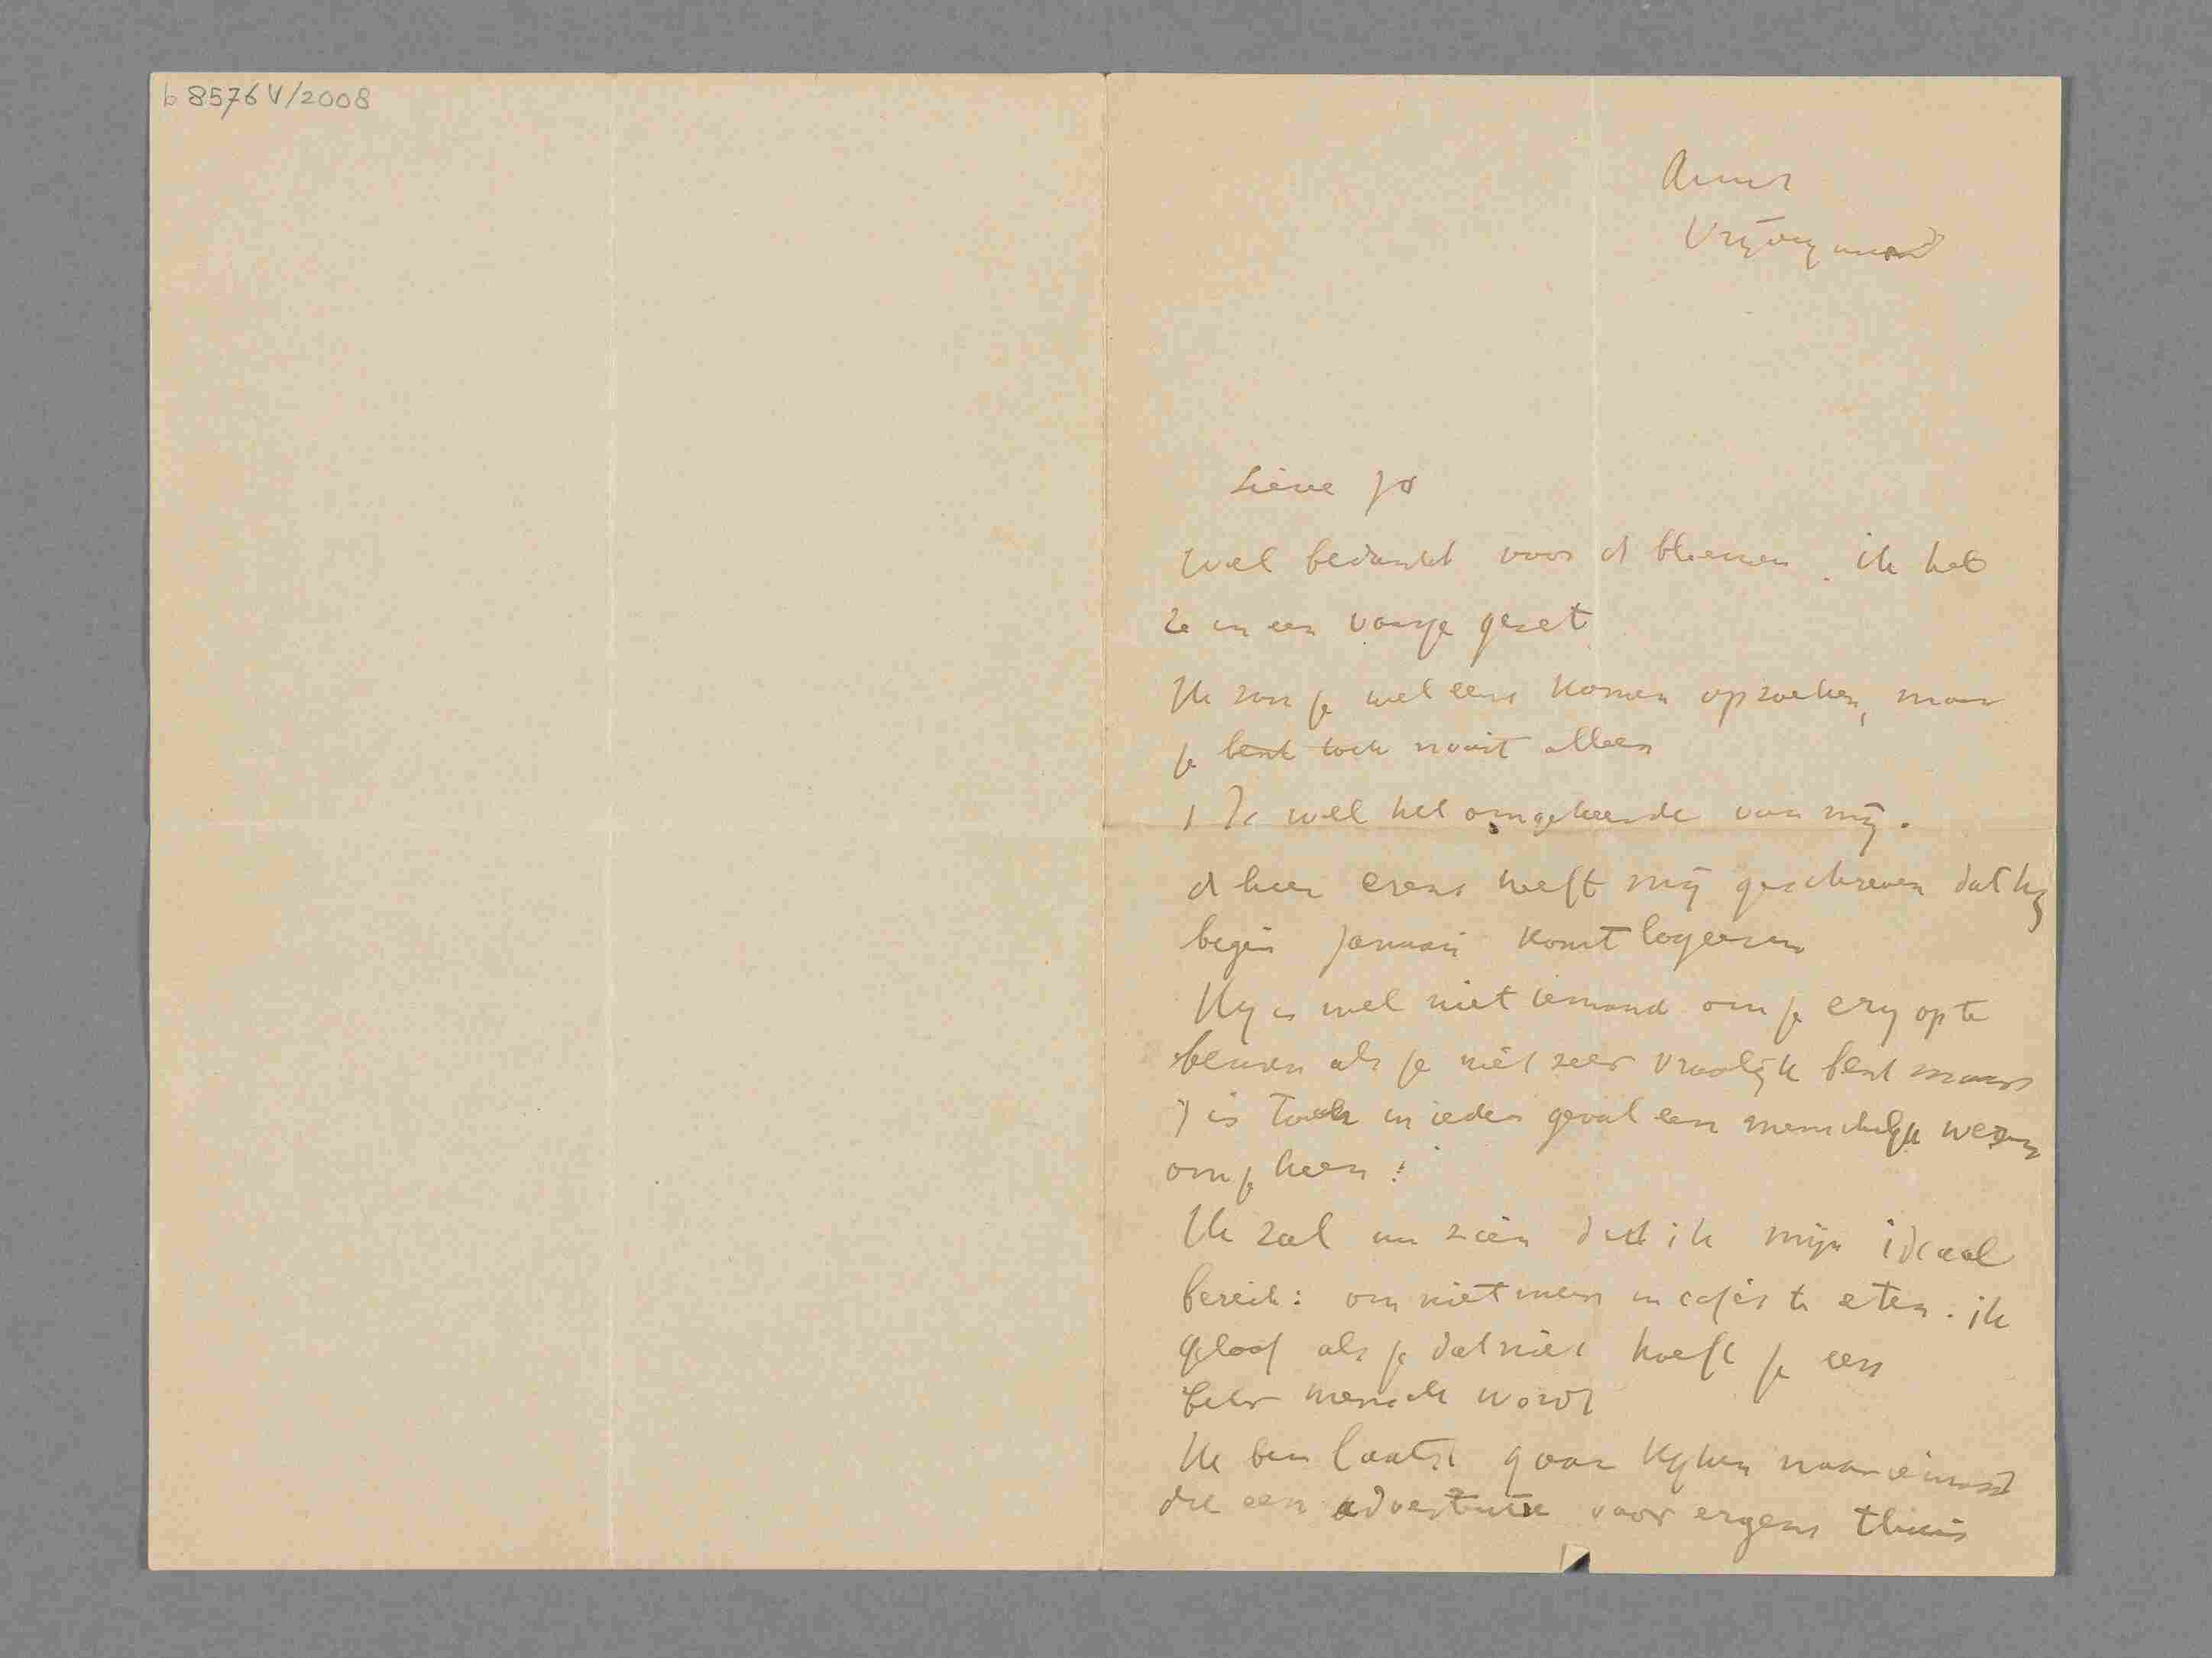 b 8576 V/2008
Amst
Vrijdag avond
Lieve Jo
Wel bedankt voor d bloemen. ik heb
ze in een vaasje gezet
Ik zou je wel eens komen opzoeken, maar
je bent toch nooit alleen
't Is wel het omgekeerde van mij.
d heer Erens heeft mij geschreven dat hij
begin Januari komt logeeren
Hij is wel niet iemand om je erg op te
beuren als je niet zeer vroolijk bent maar
't is toch in ieder geval een menschelijk wezen
om je heen!
Ik zal nu zien dat ik mijn ideaal
bereik: om niet meer in cafés te eten. ik
geloof als je dat niet hoeft je een
beter mensch wordt
Ik ben laatst gaan kijken naar iemand
die een advertentie voor ergens thuis